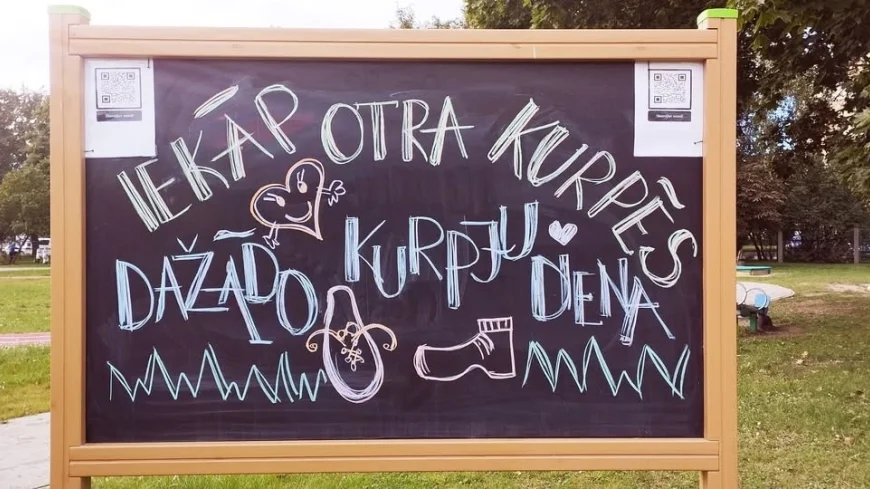 IEKĀP OTRA KURPĒS
DAŽĀDO KURPJU DIENA